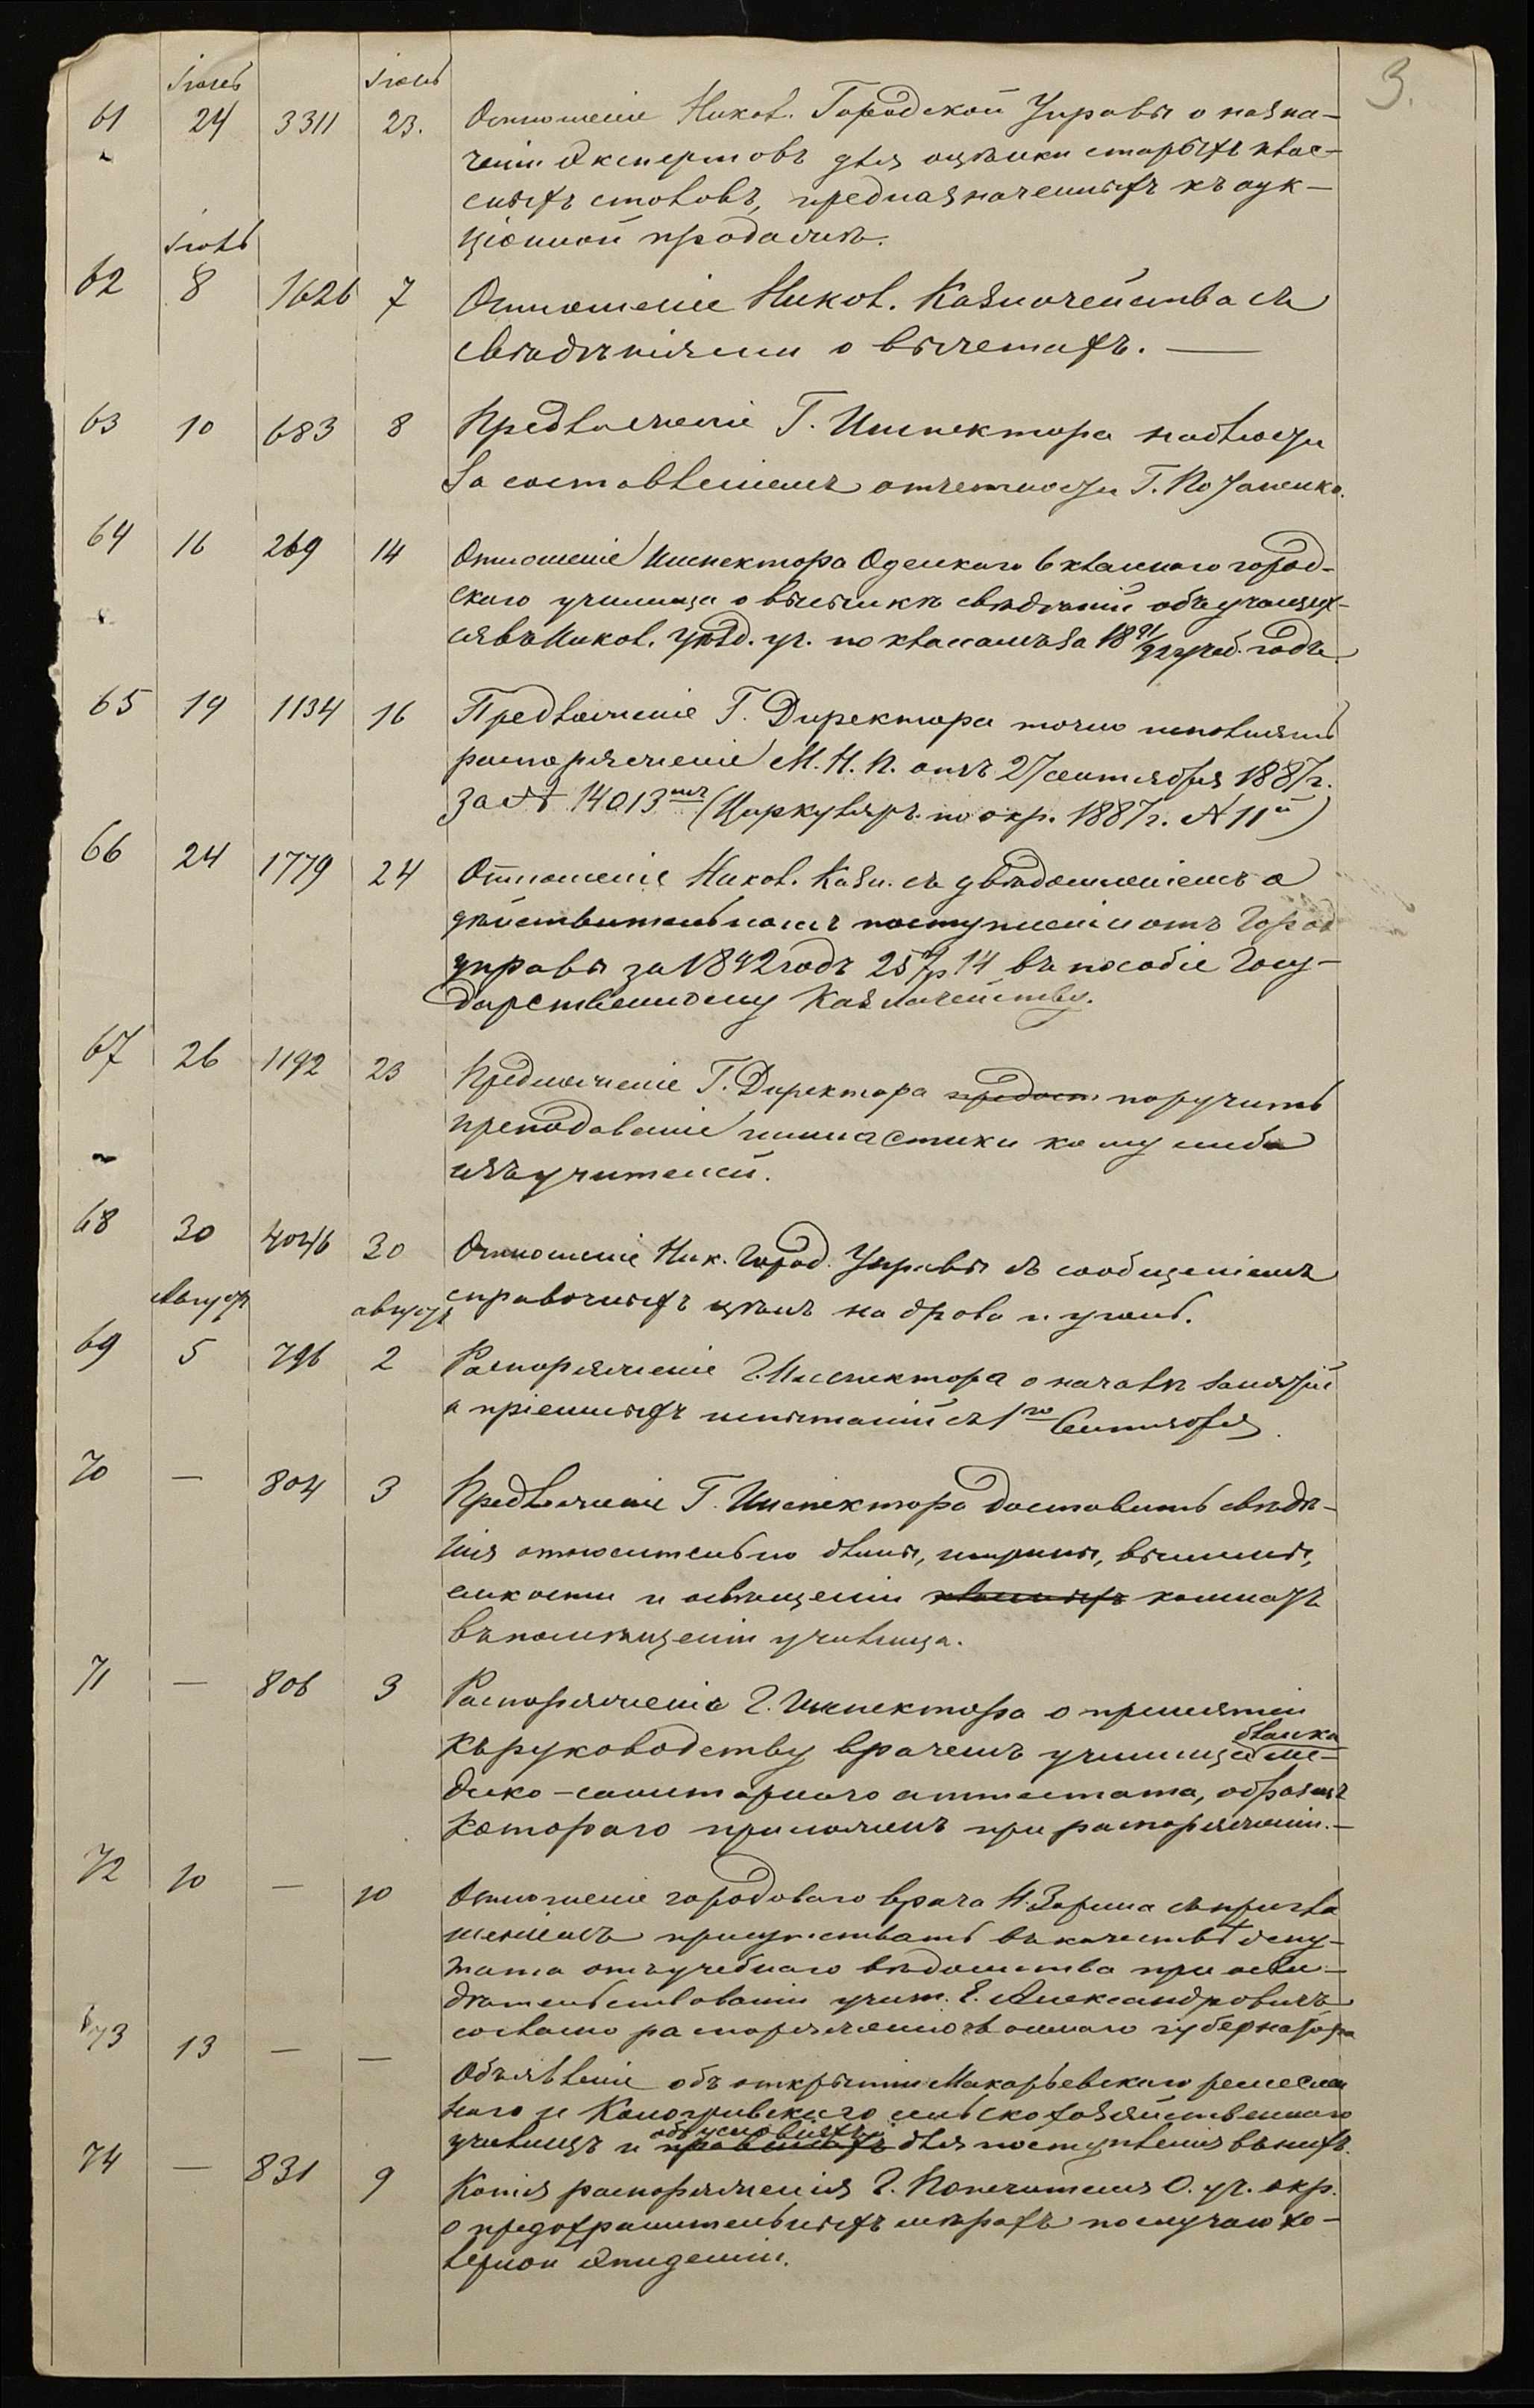 3.
Іюнь Іюнь
61 24 3311 23. Отношеніе Никол. Городской Управы о назна-
ченіи экспертовъ для оцѣнки старыхъ клас-
сныхъ столовъ, предназначенныхъ къ аук-
ціонной продажѣ.
Іюль
62 8 1626 7 Отношеніе Никол. Казначейства съ
свѣдѣніями о вычетахъ. —
63 10 683 8 Предложеніе Г. Инспектора наблюсти
за составленіемъ отчетности Г.
64 16 269 14 Отношеніе Инспектора Одесскаго 6 класснаго город-
скаго училища о высылкѣ свѣдѣній объ учащих-
ся въ Никол. уѣзд. уч. по классамъ за 1891/92 учеб. годъ.
65 19 1134 16 Предложеніе Г. Директора точно исполнять
распоряженіе М. Н. П. отъ 27 сентября 1887 г.
за № 14013мъ (Циркуляръ по окр. 1887 г. № 11й)
66 24 1779 24 Отношеніе Никол. Казн. съ увѣдомленіемъ о
дѣйствительномъ поступленіи отъ Город
управы за 1892 годъ 257 р 14 въ пособіе Госу-
дарственному Казначейству.
67 26 1192 23 Предложеніе Г. Директора предост поручить
преподаваніе гимнастики кому либо
изъ учителей.
68 30 4046 30 Отношеніе Ник. Город. Управы съ сообщеніемъ
справочныхъ цѣнъ на дрова и уголь.
Августъ августъ
69 5 796 2 Распоряженіе Г. Инспектора о началѣ занятій
и пріемныхъ испытаній съ 1го Сентября.
70 — 804 3 Предложеніе Г. Инспектора доставить свѣдѣ-
нія относительно длины, ширины, вышины,
емкости и освѣщенія классныхъ комнатъ
въ помѣщеніи училища.
71 — 806 3 Распоряженіе Г. Инспектора о принятіи
къ руководству врачемъ училища бланка ме-
дико-санитарнаго аттестата, образецъ
котораго приложенъ при распоряженіи. —
72 10 — 10 Отношеніе городоваго врача Н. Зорина съ пригла
шеніемъ присутствовать въ качествѣ депу-
тата отъ учебнаго вѣдомства при осви-
дѣтельствованіи учит. Е. Александровичъ
согласно распоряженію губернатора
73 13 — — Объявленіе объ открытіи Макарьевскаго ремеслен
наго и Кологривскаго сельскохозяйственнаго
училищъ и правилахъ объ условіяхъ для поступленія въ нихъ.
74 — 831 9 Копія распоряженія Г. Попечителя О. уч. окр.
о предохранительныхъ мѣрахъ по случаю хо-
лерной эпидеміи.